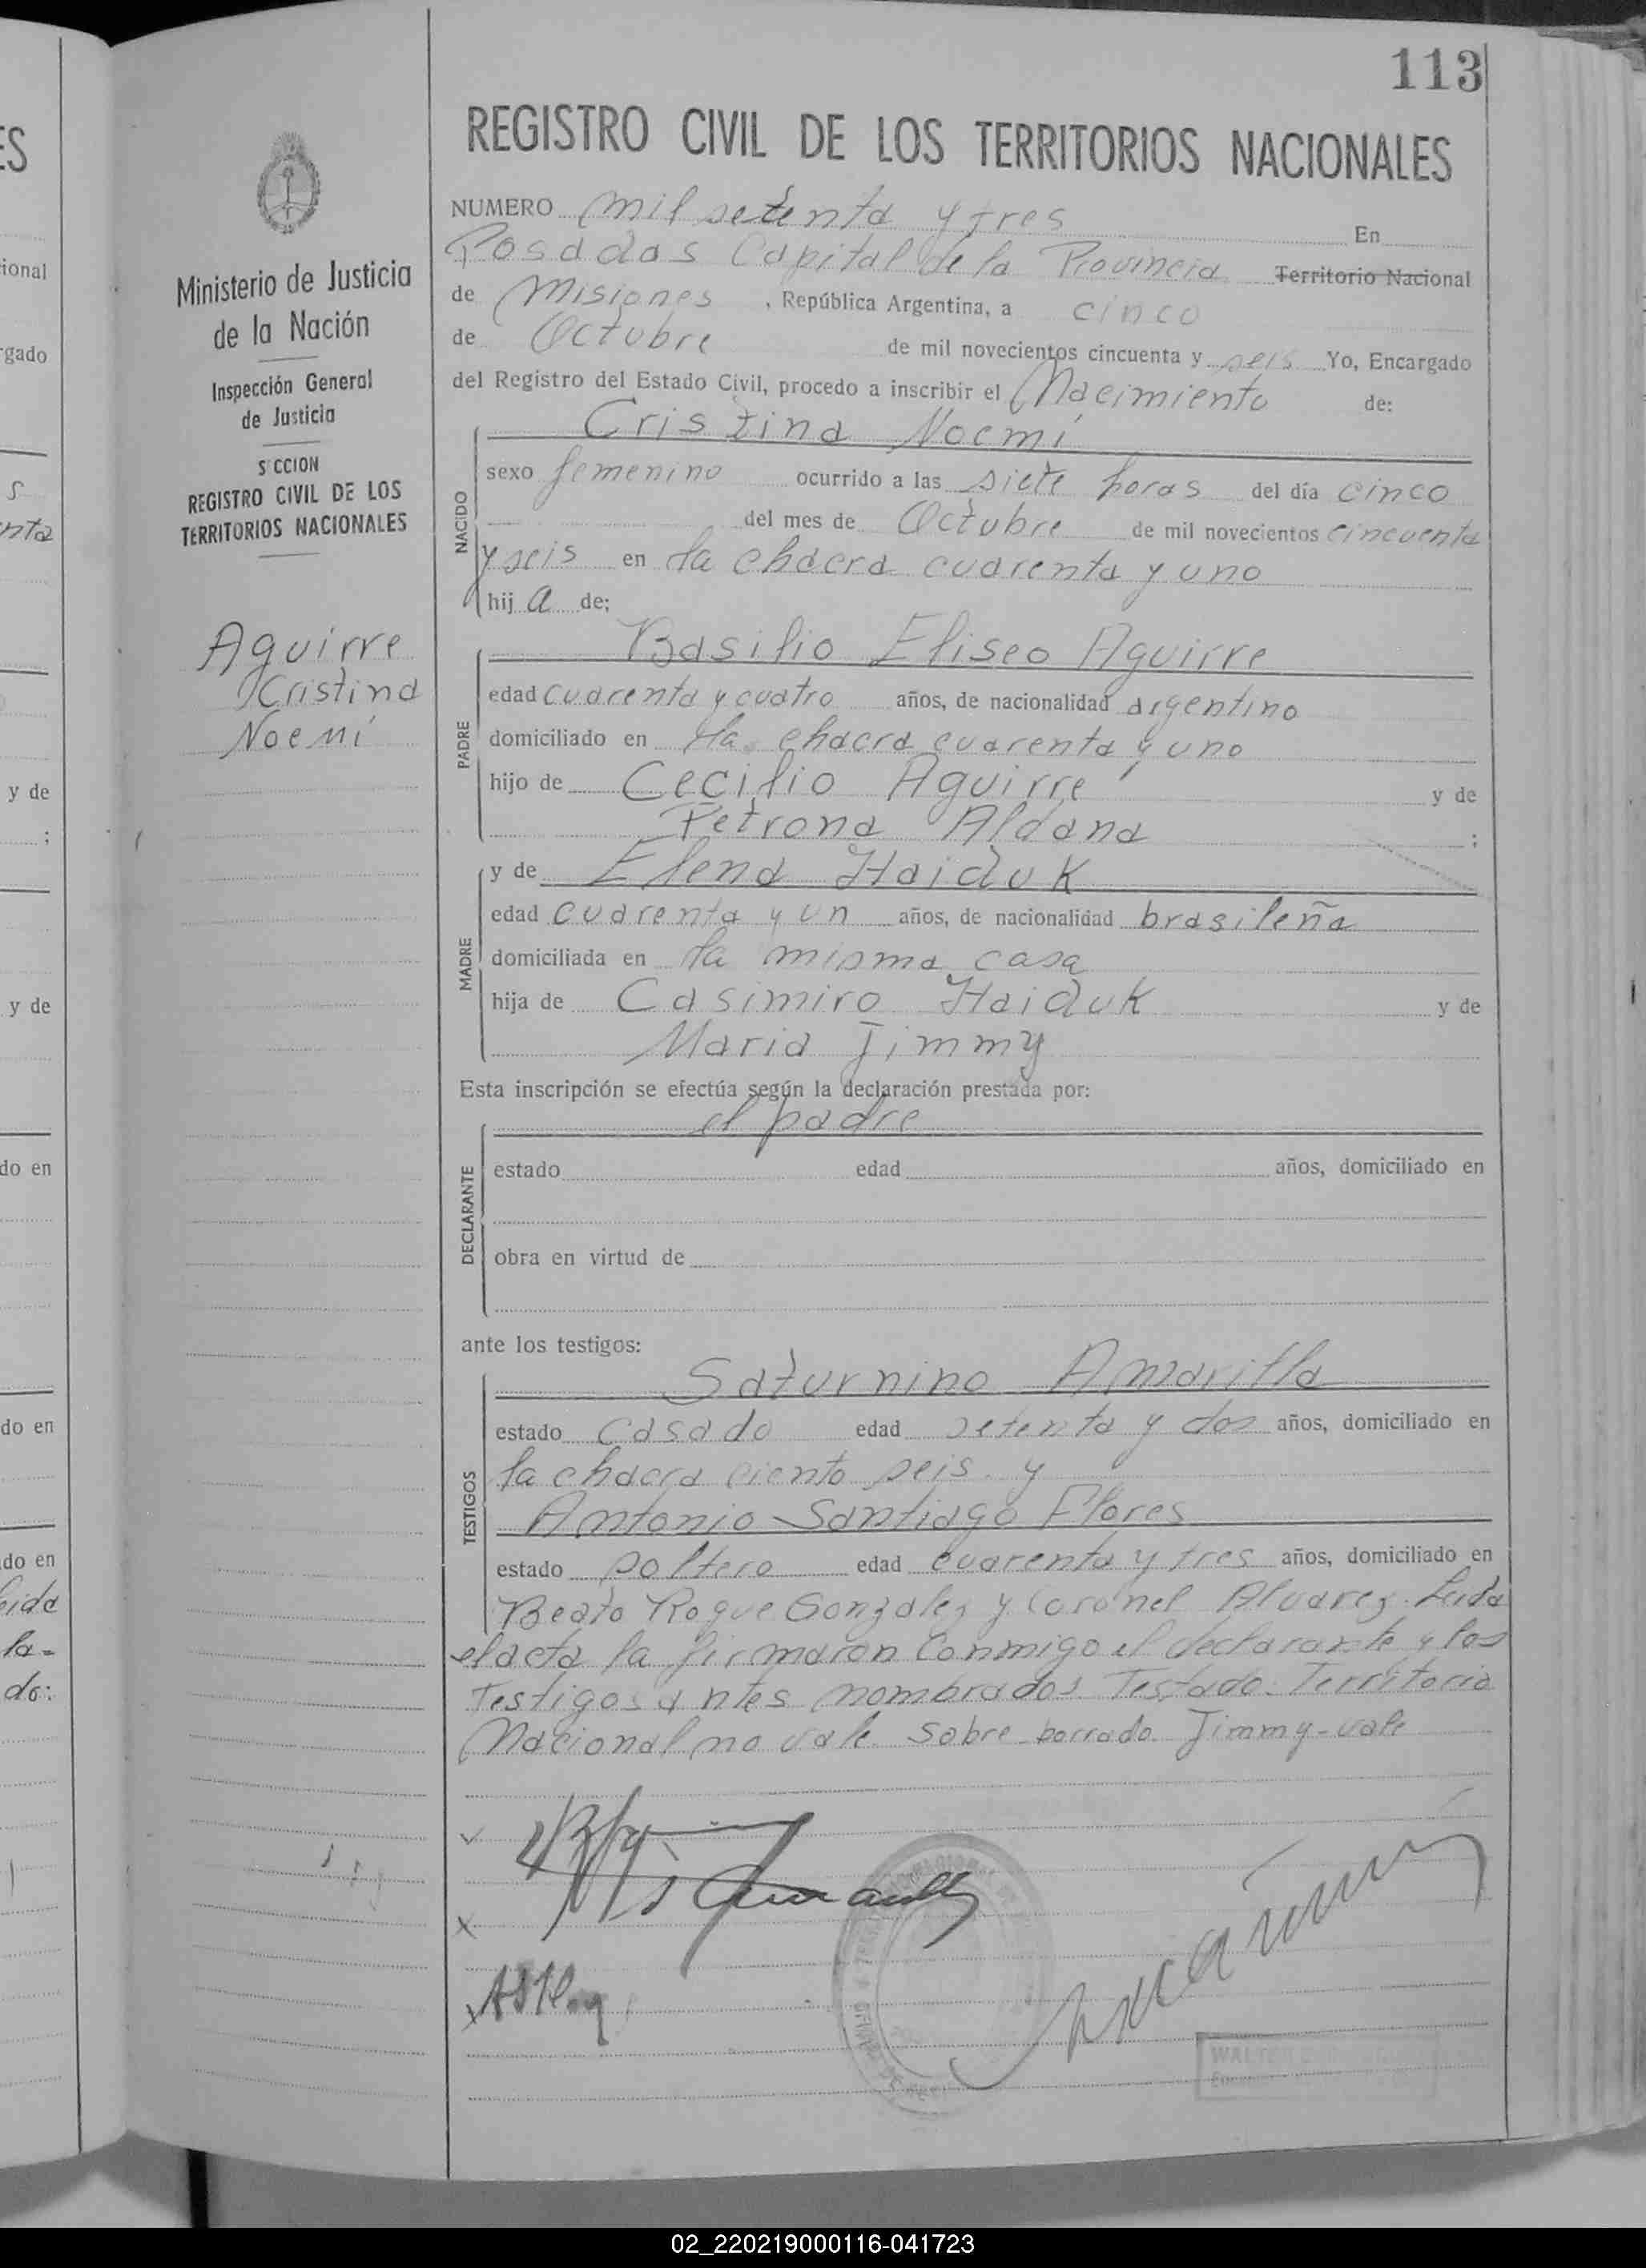 113
REGISTRO CIVIL DE LOS TERRITORIOS NACIONALES
Ministerio de Justicia
de la Nación
Inspección General
de Justicia
S CCION
REGISTRO CIVIL DE LOS
TERRITORIOS NACIONALES
Aguirre
Cristina
Noemí
NUMERO mil setenta y tres En
Posadas Capital de la Provincia Territorio Nacional
de Misiones, República Argentina, a cinco
de Octubre de mil novecientos cincuenta y seis Yo, Encargado
del Registro del Estado Civil, procedo a inscribir el Nacimiento de:
Cristina Noemí
NACIDO
sexo femenino ocurrido a las siete horas del día cinco
del mes de Octubre de mil novecientos cincuenta
y seis en la chacra cuarenta y uno
hij a de;
Basilio Eliseo Aguirre
PADRE
edad cuarenta y cuatro años, de nacionalidad argentino
domiciliado en la chacra cuarenta y uno
hijo de Cecilio Aguirre y de
Petrona Aldana ;
y de Elena Haiduk
MADRE
edad cuarenta y un años, de nacionalidad brasileña
domiciliada en la misma casa
hija de Casimiro Haiduk y de
Maria Jimmy
Esta inscripción se efectúa según la declaración prestada por:
el padre
DECLARANTE
estado edad años, domiciliado en
obra en virtud de
ante los testigos:
Saturnino Amarilla
TESTIGOS
estado casado edad setenta y dos años, domiciliado en
la chacra ciento seis y
Antonio Santiago Flores
estado soltero edad cuarenta y tres años, domiciliado en
Beato Roque Gonzalez y Coronel Alvarez. Leida
el acta la firmaron conmigo el declarante y los
testigos antes nombrados Testado: Territorio
Nacional no vale Sobre borrado Jimmy-vale
WALTER
02_220219000116-041723